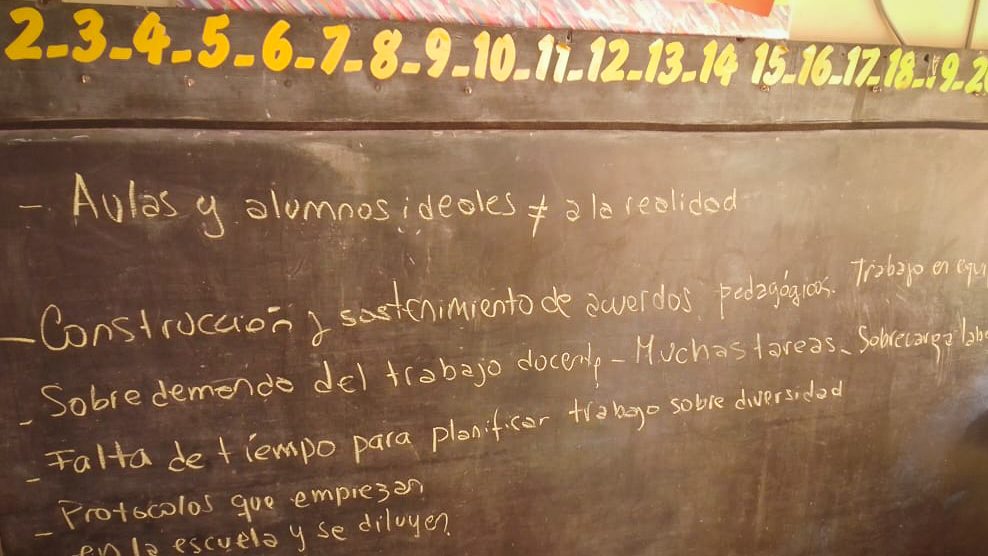 2-3-4-5-6-7-8-9-10-11-12-13-14 15-16-17-18-19-2
- Aulas y alumnos ideales ≠ a la realidad
- Construcción y sostenimiento de acuerdos pedagógicos. Trabajo en equi
- Sobredemanda del trabajo docente - Muchas tareas. Sobrecarga lab
- Falta de tiempo para planificar trabajo sobre diversidad
- Protocolos que empiezan
en la escuela y se diluyen